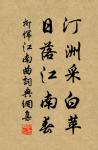 汀洲采白苹
日落江南春
柳恽江南曲詞典網集